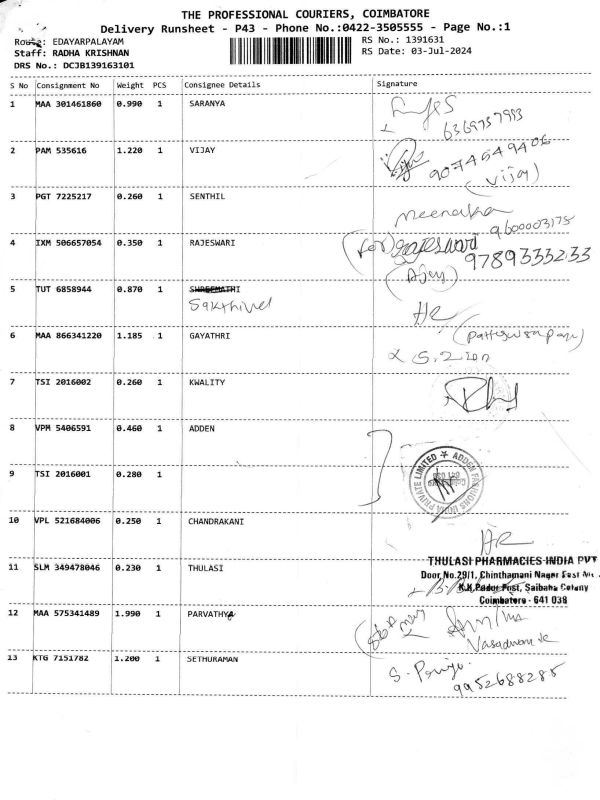 THE PROFESSIONAL COURIERS, COIMBATORE
Delivery Runsheet - P43 - Phone No.:0422-3505555 - Page No.:1
Route: EDAYARPALAYAM
RS No.: 1391631
Staff: RADHA KRISHNAN
RS Date: 03-Jul-2024
DRS No.: DCJB139163101
S No Consignment No Weight PCS Consignee Details Signature
1 MAA 301461860 0.990 1 SARANYA
2 PAM 535616 1.220 1 VIJAY
9074549406
(Vijay)
3 PGT 7225217 0.260 1 SENTHIL
Meenaksha
9600003175
4 IXM 506657054 0.350 1 RAJESWARI
(for) Rajeswari
9789333233
(Ajay)
5 TUT 6858944 0.870 1 SHREEMATHI
Sakthivel
6 MAA 866341220 1.185 1 GAYATHRI
7 TSI 2016002 0.260 1 KWALITY
8 VPM 5406591 0.460 1 ADDEN
ADDEN FASHIONS INDIA PRIVATE LIMITED
9 TSI 2016001 0.280 1
10 VPL 521684006 0.250 1 CHANDRAKANI
11 SLM 349478046 0.230 1 THULASI
THULASI PHARMACIES INDIA PVT
Door No.29/1, Chinthamani Nagar East
K.K.Pudur Post, Saibaba Colony
Coimbatore - 641 038
12 MAA 575341489 1.990 1 PARVATHY
13 KTG 7151782 1.200 1 SETHURAMAN
9952688285